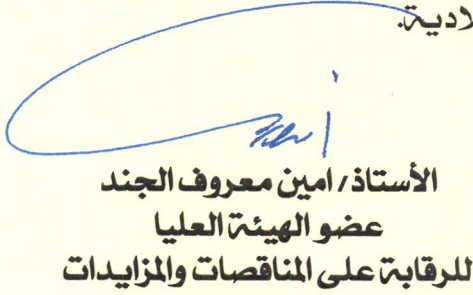 لادية.
الأستاذ/ امين معروف الجند
عضو الهيئة العليا
للرقابة على المناقصات والمزايدات